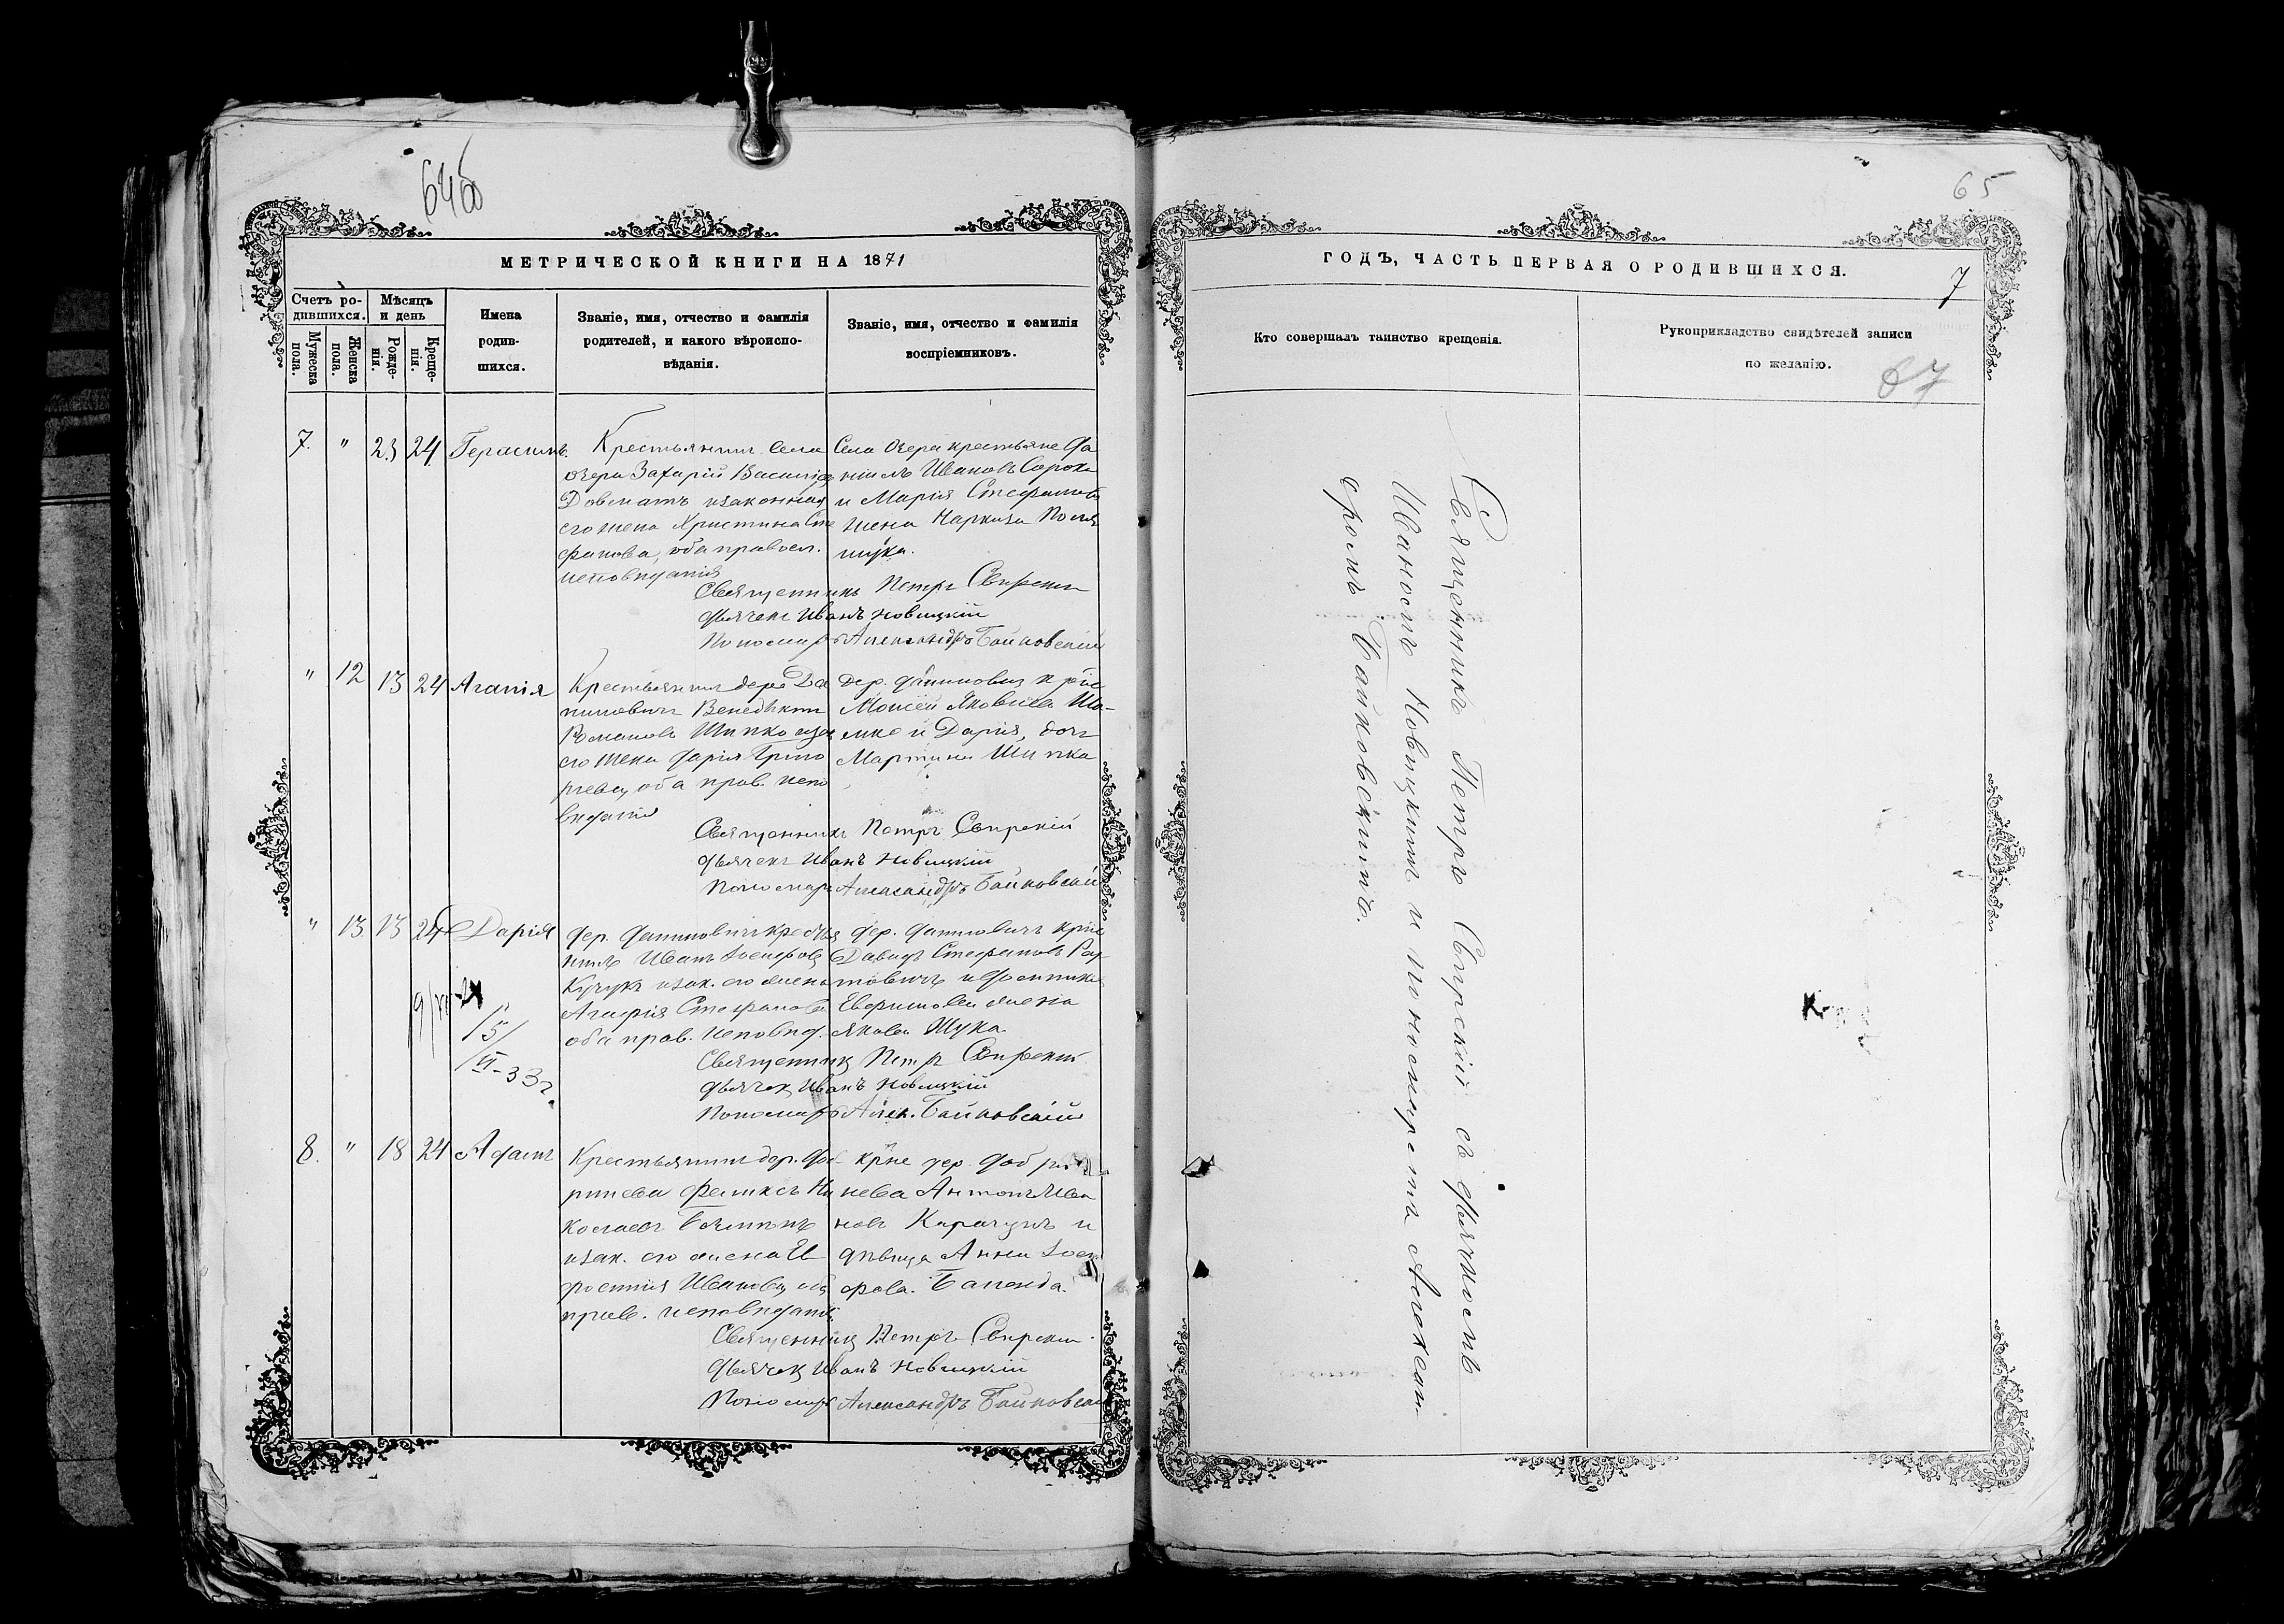 64об
МЕТРИЧЕСКОЙ КНИГИ НА 1871
Счетъ ро-
дившихся.
Мѣсяцъ
и день
Мужеска
пола.
Женска
пола.
Рожде-
нія.
Креще-
нія.
Имена
родив-
шихся.
Званіе, имя, отчество и фамилія
родителей, и какого вѣроиспо-
вѣданія.
Званіе, имя, отчество и фамилія
воспріемниковъ.
7. " 23 24 Герасимъ.
Крестьянинъ села
озера Захарій Василіев
Довматъ и законная
его жена Христина Сте
фанова, оба правосл.
исповѣданія
Села Озера крестьяне Да
ніилъ Ивановъ Сорока
и Марія Стефанова
жена Наркиза Поли
щука.
Священникъ Петръ Свирскій
Дьячекъ Иванъ Новицкій
Пономарь Александръ Байковскій
" 12 13 24 Агапія
Крестьянинъ дер. Да
ниловичъ Венедиктъ
Романовъ Шипко и зак
его жена Дарія Григо
рьева, оба прав. испо
вѣданія
Дер. Даниловичъ крне
Моисей Яковлевъ Ша-
мко и Дарія, дочь
Мартина Шипка
Священникъ Петръ Свирскій
Дьячекъ Иванъ Новицкій
Пономарь Александръ Байковскій
" 13 13 24 Дарія
15/
VI-33г.
дер. Даниловичъ крестья
нинъ Иванъ Іосифов
Кучукъ и зак. его жена
Агафія Стефанова
оба прав. исповѣд.
дер. Даниловичъ крне
Давидъ Стефановъ
Евфимова жена
Якова Жука
Священникъ Петръ Свирскій
Дьячекъ Иванъ Новицкій
Пономарь Алек. Байковскій
8. " 18 24 Адамъ
Крестьянинъ дер. Доб-
ринева Феликсъ Ни
колаевъ
и зак. его жена Ев
фросинія Иванова, оба
прав. исповѣданія.
Крне дер. Добри
нева Антонъ Ива
новъ Карачунъ и
дѣвица Анна Іоси
фова.
Священникъ Петръ Свирскій
Дьячекъ Иванъ Новицкій
Пономарь Александръ Байковскій
65
ГОДЪ, ЧАСТЬ ПЕРВАЯ О РОДИВШИХСЯ.
7
Кто совершалъ таинство крещенія.
Рукоприкладство свидѣтелей записи
по желанію.
67
Священникъ Петръ Свирскій съ дьячкомъ
Иваномъ Новицкимъ и пономаремъ Александ-
ромъ Байковскимъ.